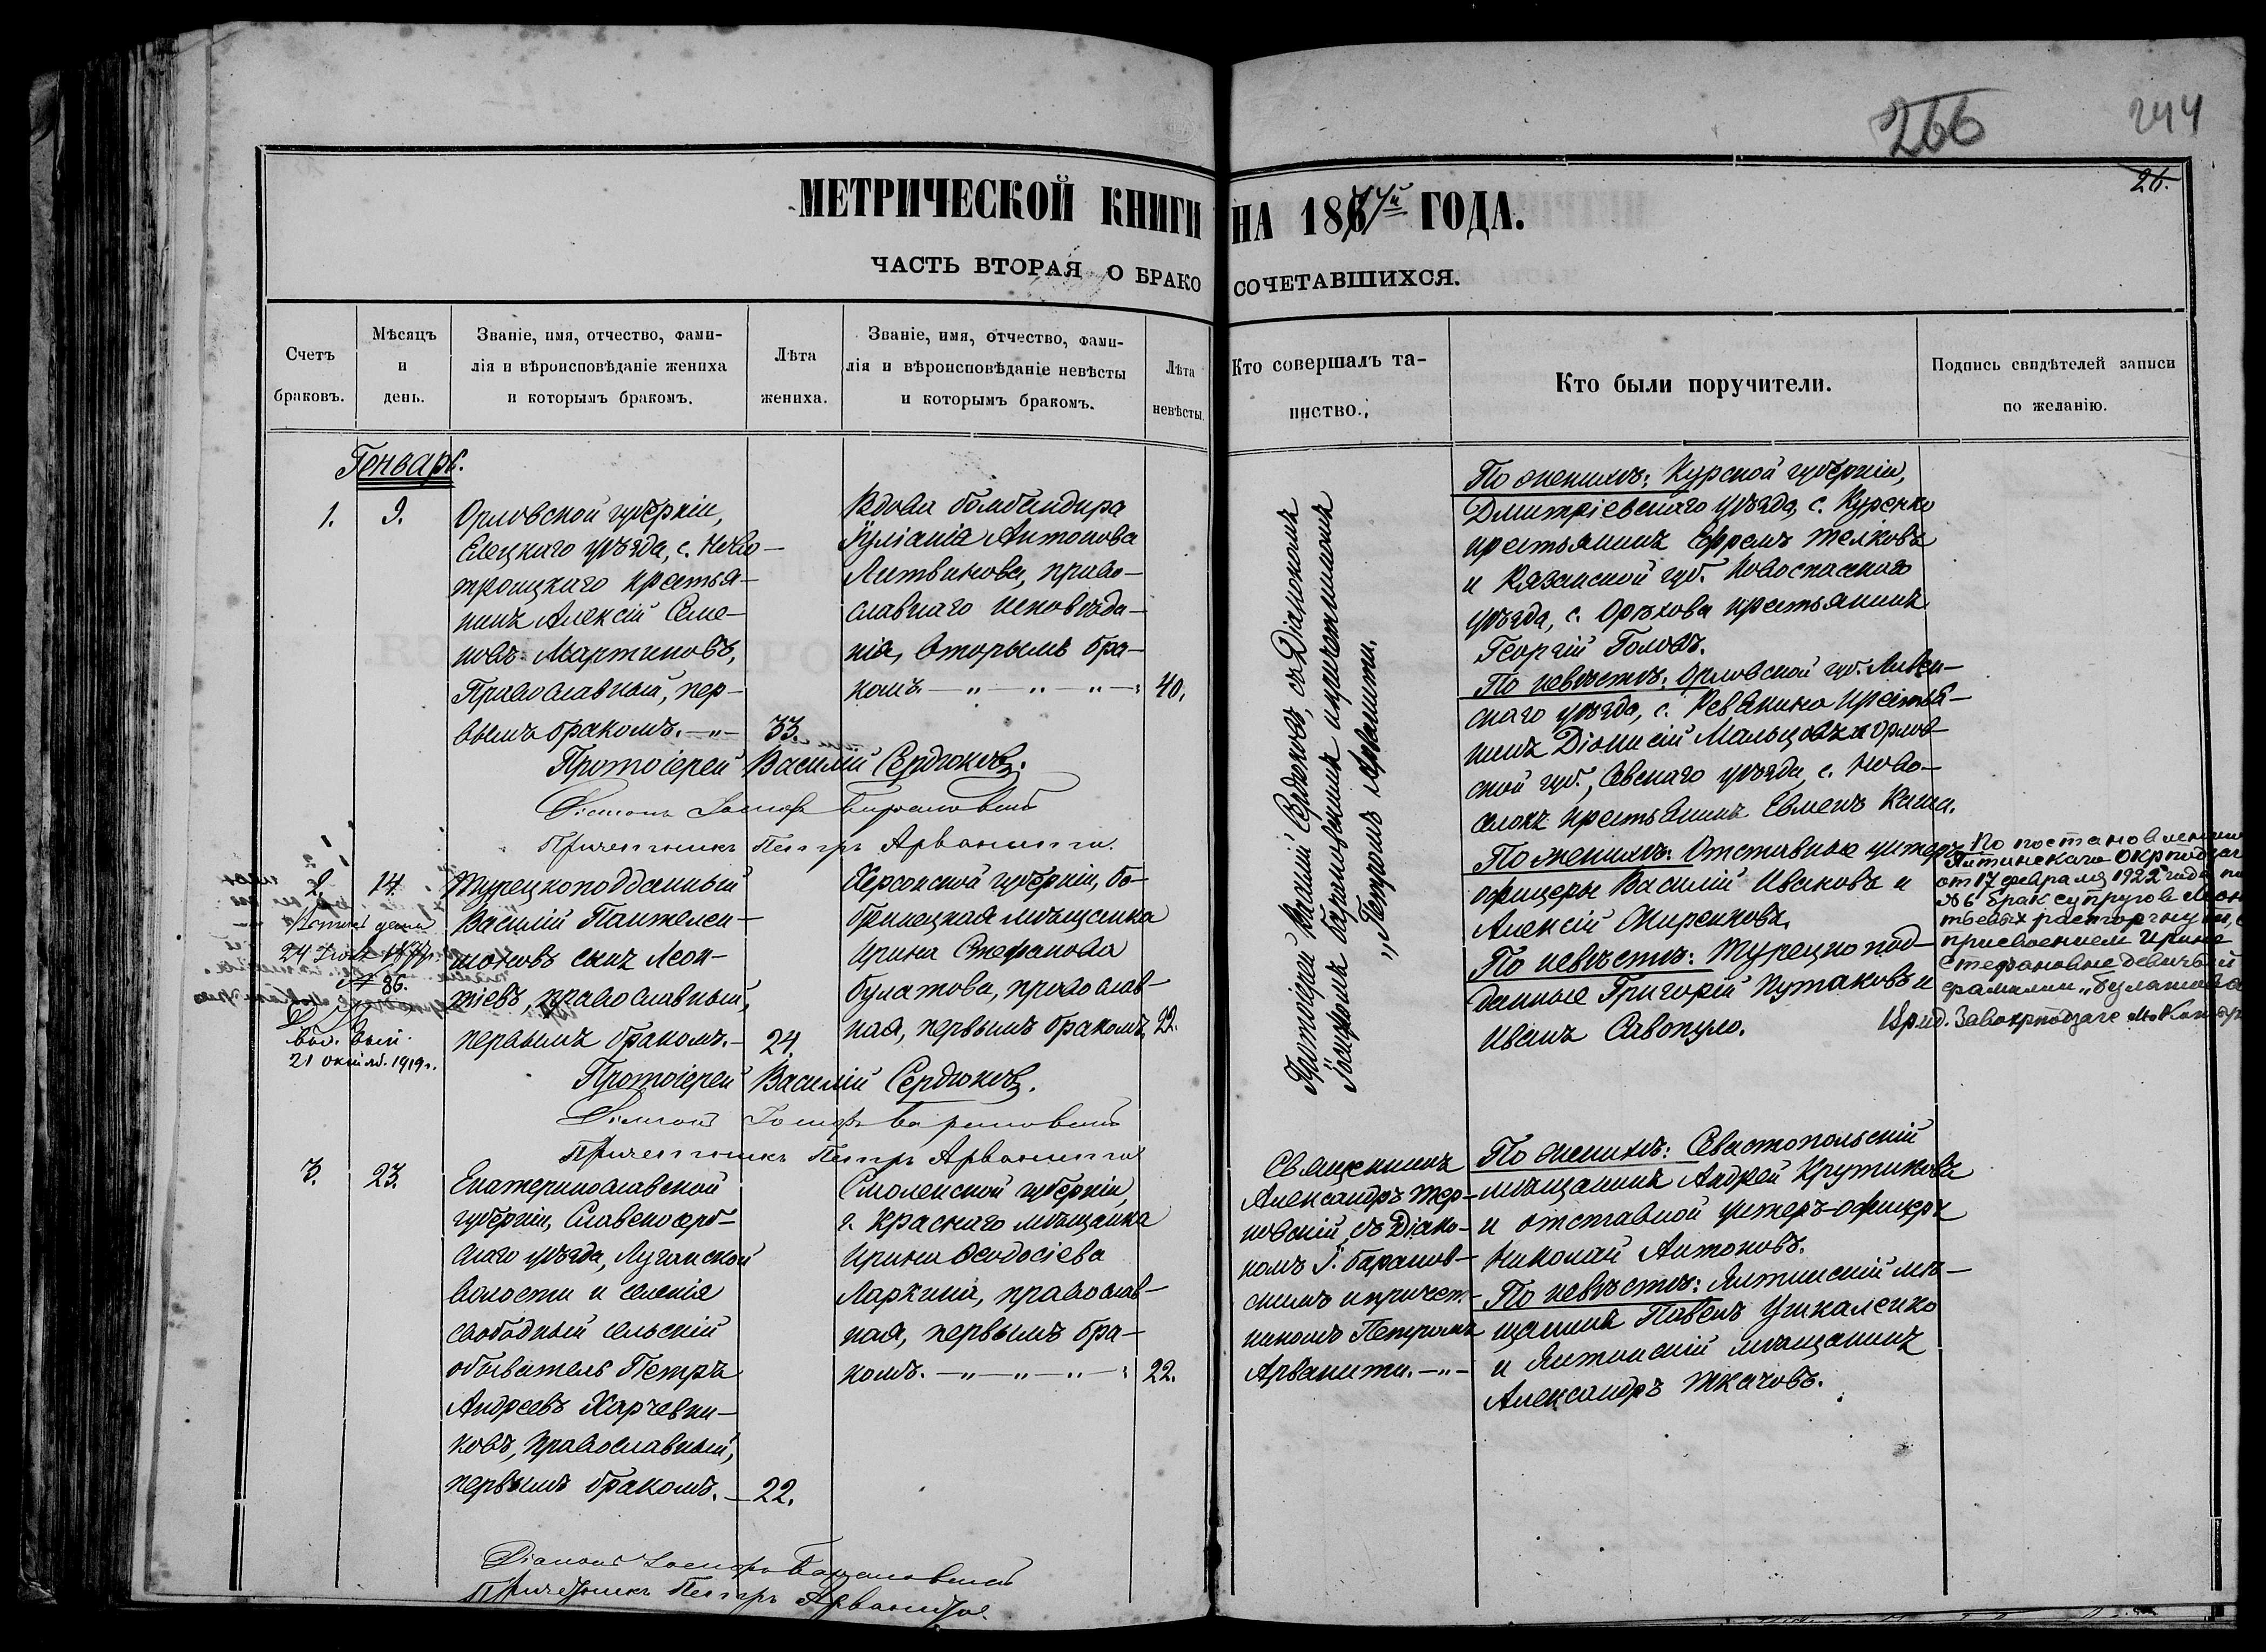 266
244
26.
МЕТРИЧЕСКОЙ КНИГИ НА 1877й ГОДА.
ЧАСТЬ ВТОРАЯ О БРАКОСОЧЕТАВШИХСЯ.
Счетъ
браковъ.
Мѣсяцъ
и
день.
Званіе, имя, отчество, фами-
лія и вѣроисповѣданіе жениха
и которымъ бракомъ.
Лѣта
жениха.
Званіе, имя, отчество, фами-
лія и вѣроисповѣданіе невѣсты
и которымъ бракомъ.
Лѣта
невѣсты.
Кто совершалъ та-
инство.
Кто были поручители.
Подпись свидѣтелей записи
по желанію.
Генварь.
1.
9.
Орловской губерніи,
Елецкаго уѣзда, с. Ново-
троицкаго крестья-
нинъ Алексій Семе-
новъ Мартиновъ,
Православный, пер-
вымъ бракомъ. —"—
33.
Вдова бомбандира
Іуліанія Антонова
Литвинова, право-
славнаго исповѣда-
нія, вторымъ бра-
комъ. —"—"—"—
40.
Протоіерей Василій Сердюковъ, съ Діакономъ
Іосифомъ Барановскимъ и причетникомъ
Петромъ Арванити.
По женихѣ: Курской губерніи,
Дмитріевскаго уѣзда, с.
крестьянинъ Ефремъ Телковъ
и Рязанской губ. Новоспаскаго
уѣзда, с. Орѣхова крестьянинъ
Георгій Головъ.
По невѣстѣ: Орловской губ. Ливен-
скаго уѣзда, с. Ревякина крестья-
нинъ Діонисій Мальцовъ и Орлов-
ской губ., Севскаго уѣзда, с. Ново-
селокъ крестьянинъ Евменъ Каша.
Протоіерей Василій Сердюковъ.
Діаконъ Іосифъ Барановскій
Причетникъ Петръ Арванити.
2.
14.
24 Іюля 1877г.
№ 86.
21 октяб. 1919г.
Турецкоподданный
Василій Пантелеи-
моновъ сынъ Леон-
тіевъ, православный,
первымъ бракомъ. —
24.
Херсонской губерніи, бо-
бринецкая мѣщанка
Ирина Стефанова
Булатова, православ-
ная, первымъ бракомъ.
22.
По женихѣ: Отставные унтеръ-
офицеры Василій Ивановъ и
Алексій Жиренковъ.
По невѣстѣ: Турецко под-
данные Григорій Путаковъ и
Иванъ Савопуло.
По постановлению
Ялтинского Окрподзаг
от 17 февраля 1922 года
№ 6 брак супругов Леон-
тьевых расторгнут, с
присвоением Ирине
Стефановне девичьей
фамилии „Булатова
Протоіерей Василій Сердюковъ.
Діаконъ Іосифъ Барановскій
Причетникъ Петръ Арванити
3.
23.
Екатеринославской
губерніи, Славеносерб-
скаго уѣзда, Луганской
волости и селенія
свободный сельскій
обыватель Петръ
Андреевъ Харчевни-
ковъ, православный,
первымъ бракомъ. —
22.
Смоленской губерніи,
г. Краснаго мѣщанка
Ирина Ѳеодосіева
Ларкина, православ-
ная, первымъ бра-
комъ. —"—"—"—
22.
Священникъ
Александръ Тер-
новскій, съ Діако-
номъ І. Баранов-
скимъ и причет-
никомъ Петромъ
Арванити. —"—
По женихѣ: Севастопольскій
мѣщанинъ Андрей Крутиковъ
и отставной унтеръ-офицеръ
Николай Антоновъ.
По невѣстѣ: Ялтинскій мѣ-
щанинъ Павелъ Ушкаленко
и Ялтинскій мѣщанинъ
Александръ Ткачовъ.
Діаконъ Іосифъ Барановскій
Причетникъ Петръ Арванити.